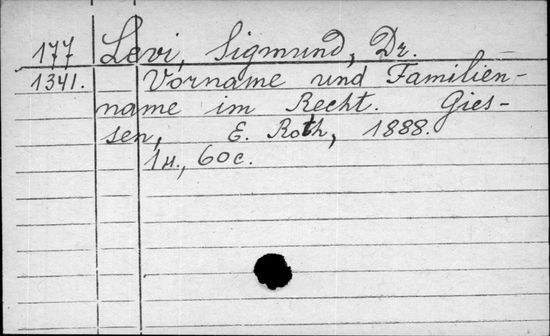 177 Levi, Sigmund, Dr.
1341. Vorname und Familien-
name im Recht. Gies-
sen, E. Roth, 1888.
1 M., 60 c.